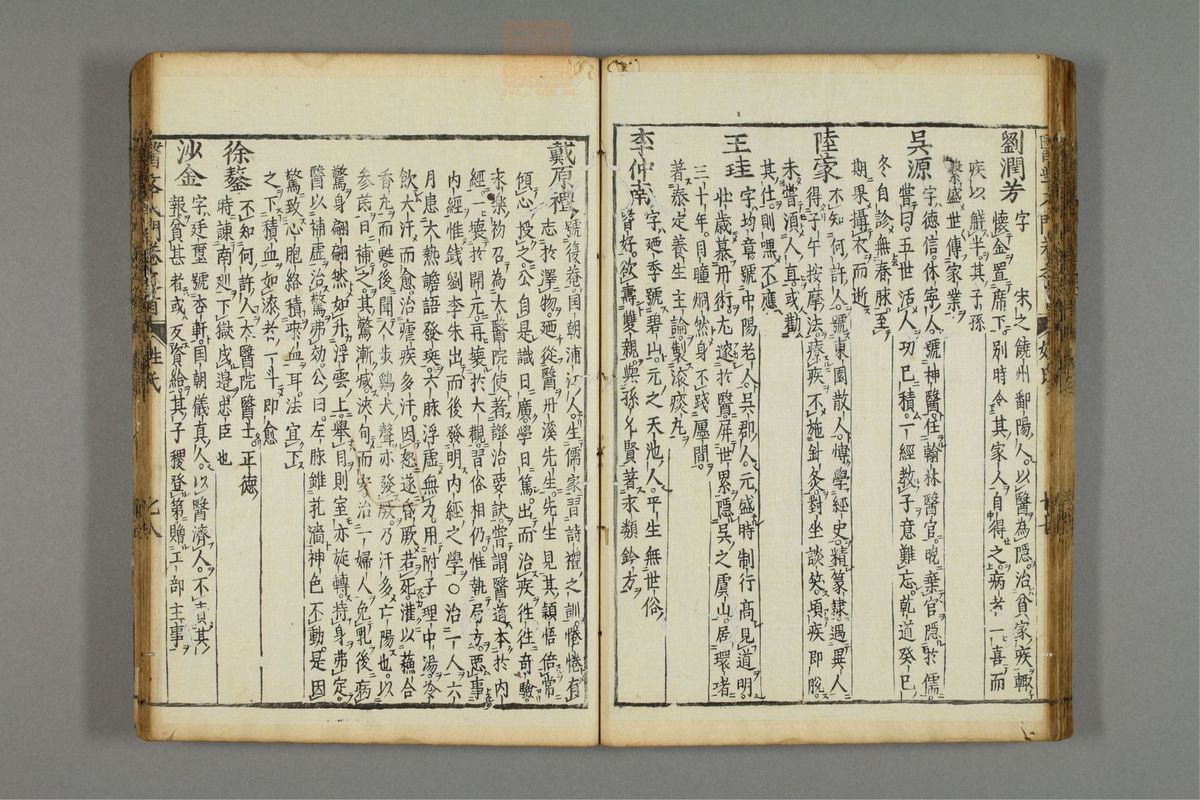 劉潤芳 字 宋之饒州鄱陽人以醫為隱治貧家疾輒
懷金置席下別時令其家人自得之病者一喜而
疾以鮮半其子孫
繁盛世傳家業
吳源 字德信休寧人號神醫任翰林醫官晚棄官隱於儒
嘗曰五世活人功已積一經教子意難忘乾道癸巳
冬自診無春脉至
期果攝衣而逝
陸蒙 不知何許人號東園散人博學經史精篆隷遇異人
得子午按摩法療疾不施針灸對坐談笑頃疾即脫
未嘗湏人直或勸
其仕則嘿不應
王珪 字均章號中陽老人吳郡人元盛時制行高見道明
壯歲慕丹術尤邃於醫屏世累隱吳之虞山居環堵
三十年目瞳烱然身不踐廛間
著泰定養生主論製滚痰丸
李仲南 字廼季號碧山元之天池人平生無世俗
皆好欲壽雙親與孫允賢著永類鈐方
戴原禮 號復菴国朝浦江人生儒家習詩禮之訓惓惓有
志於澤物廼從醫丹溪先生先生見其穎悟倍常
傾心授之公自是識日廣學日篤出而治疾徃徃奇驗
永樂初召為太醫院使著證治要訣嘗謂醫道本於内
經一壊於開元再壊於大觀習俗相仍惟執局方悪事
内經惟錢劉李朱出而後發明内經之學○治一人六
月患大熱譫語發斑六脉浮虛無力用附子理中湯冷
飲大汗而愈治瘧疾多汗因怒遂昏厥若死灌以蘓合
香丸而甦後聞人步鷄犬聲亦發厥乃汗多亡陽也以
参芪日補之其驚漸減浹旬而安治一婦人免乳後病
驚身翩翩然如升浮雲上舉目則室亦旋轉持身弗定
醫以補虛治驚弗効公曰左脉雖芤濇神色不動是因
驚致心胞絡積血耳法宜下
之下積血如漆者一斗即愈
徐鏊 不知何許人大醫院醫士正德
時諌南廵下獄戍邉忠臣也
沙金 字廷璽號杏軒国朝儀真人以醫濟人不責其
報貧甚者或反資給其子稷登第贈工部主事